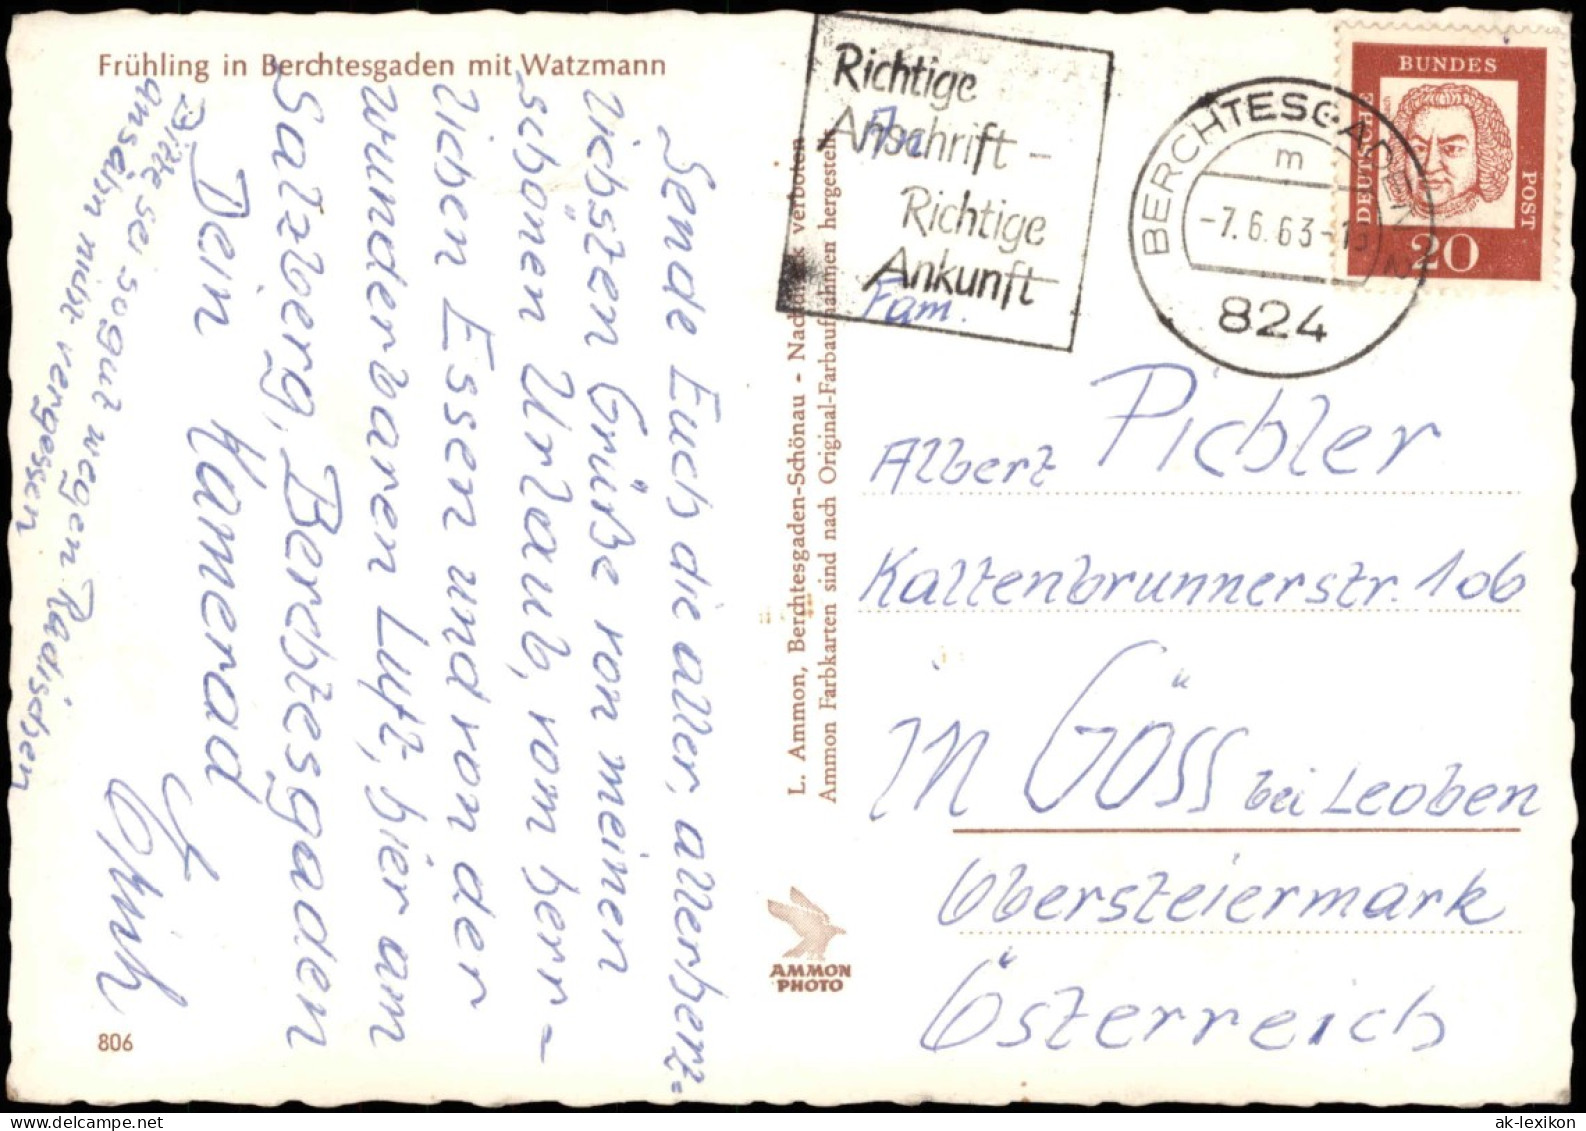 Frühling in Berchtesgaden mit Watzmann
Sende Euch die aller, allerherz-
lichsten Grüße von meinen
schönen Urlaub, vom herr-
lichen Essen und von der
wunderbaren Luft, hier am
Salzberg, Berchtesgaden
Dein Kamerad
Bitte sei so gut wegen Radischen
ansähn nicht vergessen
806
L. Ammon, Berchtesgaden-Schönau - Nachdruck verboten
Ammon Farbkarten sind nach Original-Farbaufnahmen hergestellt
AMMON
PHOTO
Richtige
Anschrift -
Richtige
Ankunft
BERCHTESGADEN 2
m
-7.6.63-
824
BUNDES
DEUTSCHE
POST
20
An
Fam.
Albert Pichler
Kaltenbrunnerstr. 106
in Göss bei Leoben
Obersteiermark
Österreich
ak-lexikon